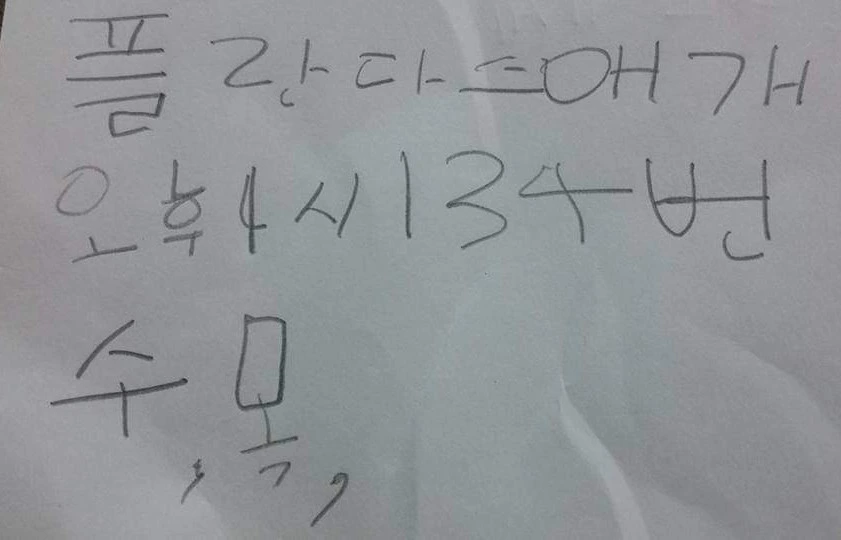 플란다스애개
오후4시134번
수,목,